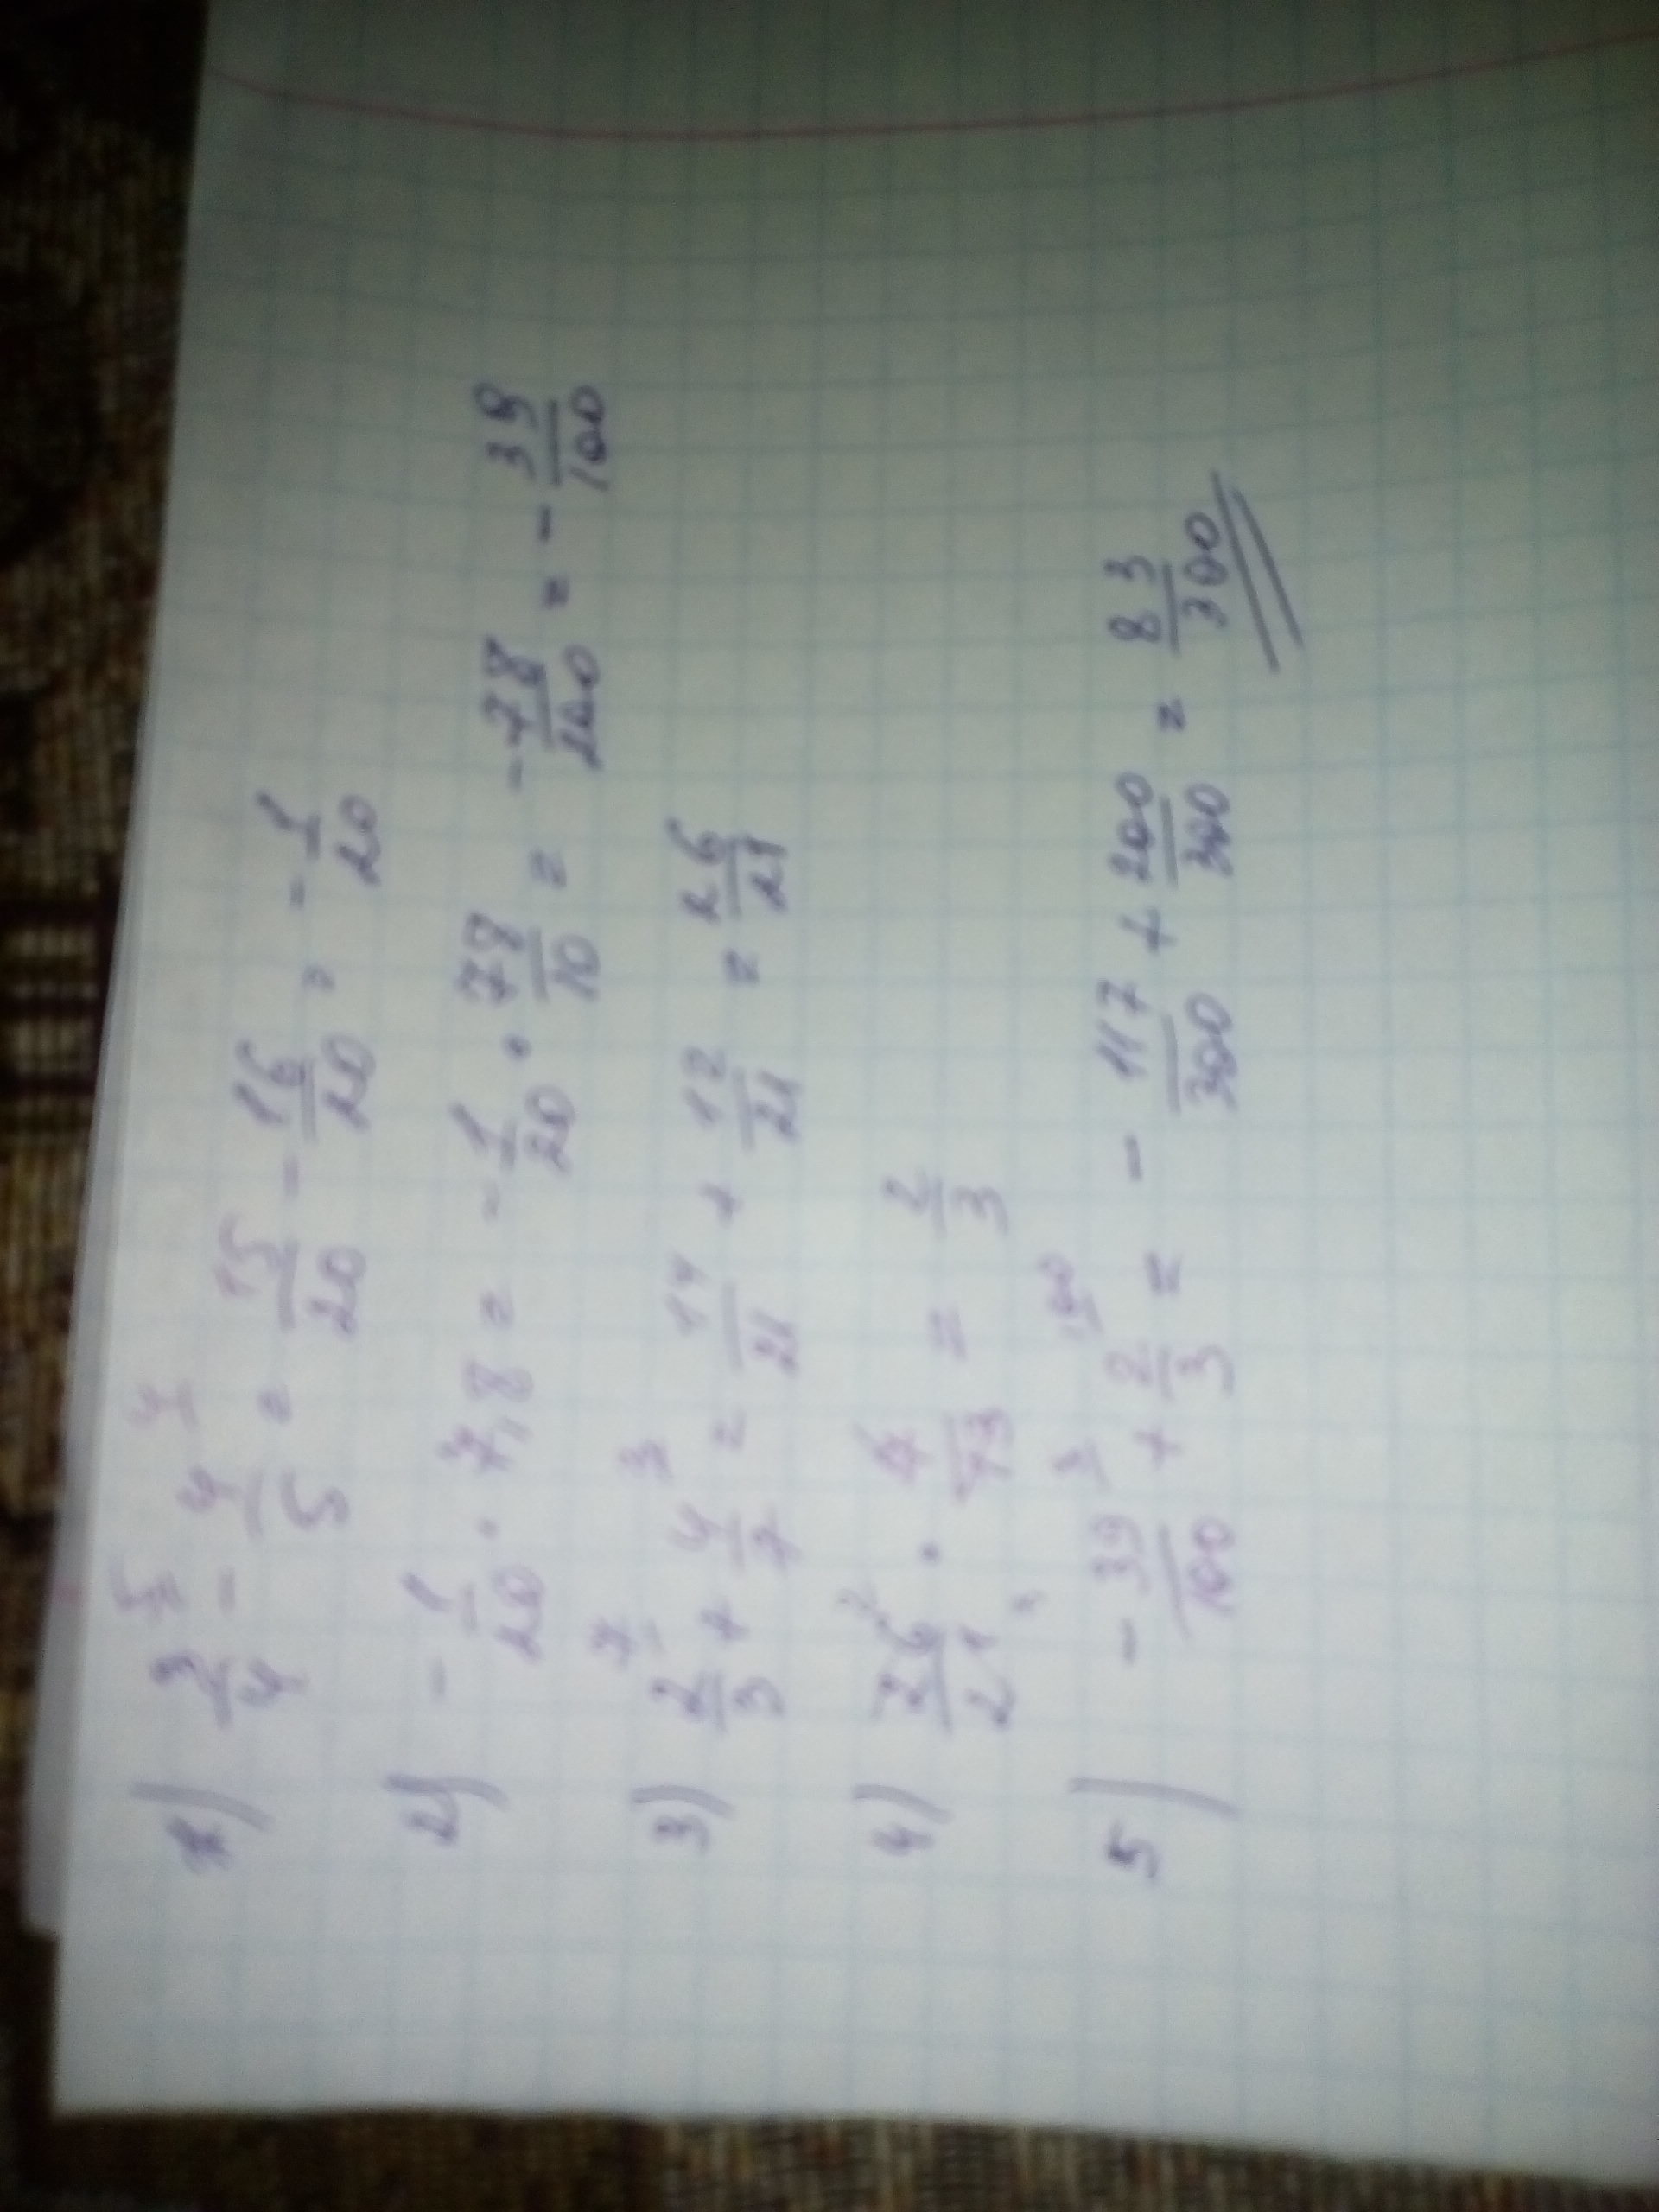 1) 3/4 - 4/5 = 15/20 - 16/20 = - 1/20
2) - 1/20 · 7,8 = - 1/20 · 78/10 = - 78/200 = - 39/100
3) 2/3 + 4/7 = 14/21 + 12/21 = 26/21
4) 26/21 · = 2/3
5) - 39/100 + 2/3 = - 117/300 + 200/300 = 83/300